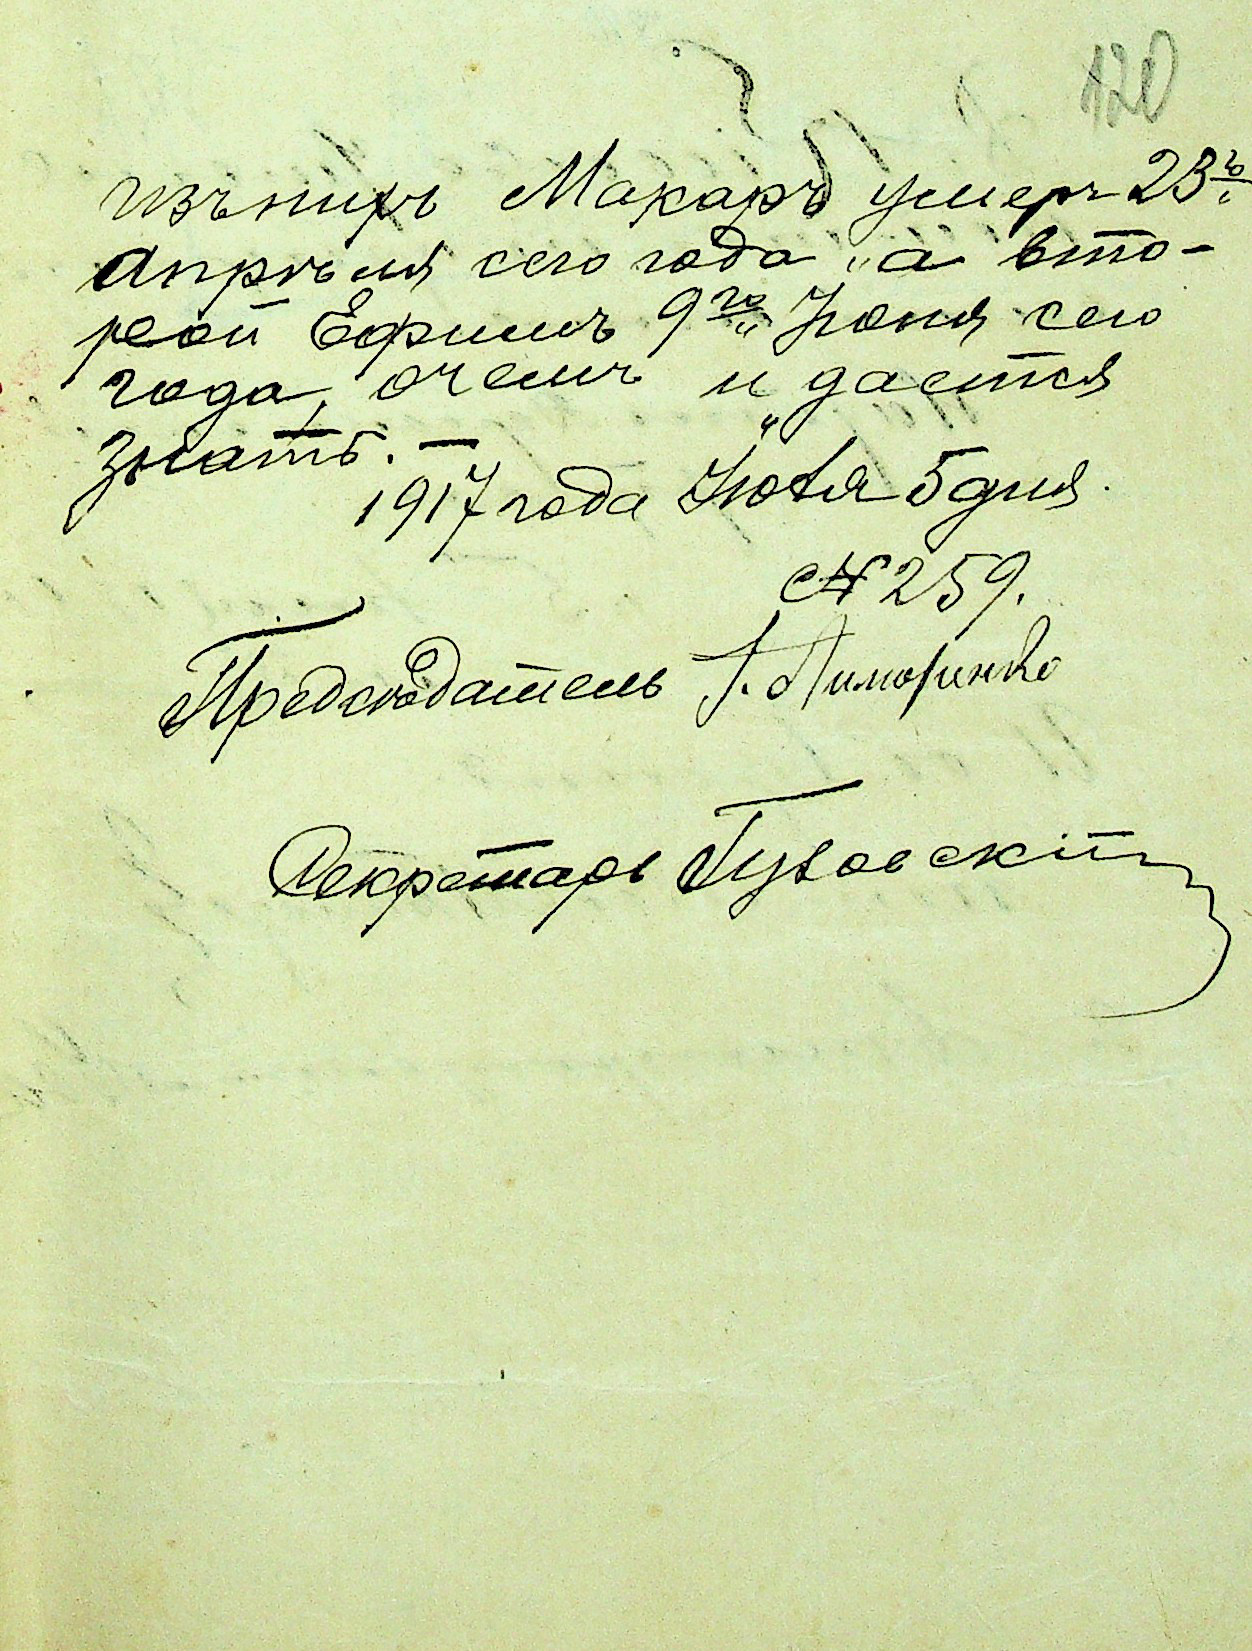 120
изъ нихъ Макаръ умеръ 23го
Апрѣля сего года, а вто-
рой Ефимъ 9го Іюня сего
года, о чемъ и дается
знать. —
1917 года Іюля 5 дня.
№ 259.
Предсѣдатель
Секретарь